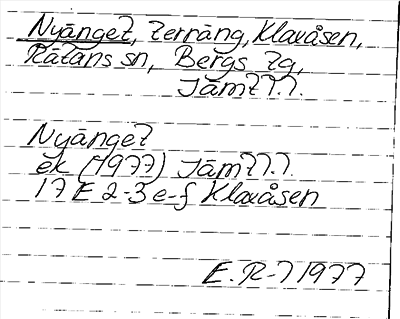 Nyänget, terräng, Klavåsen,
Rätans sn, Bergs tg,
Jämtl.l.
Nyänget
ek (1977) Jämtl.l.
17 E 2-3 e-f Klavåsen
E. R-l 1977